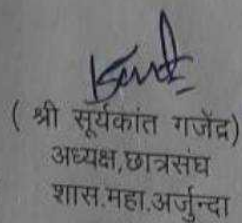 ( श्री सूर्यकांत गजेंद्र)
अध्यक्ष,छात्रसंघ
शास.महा.अर्जुन्दा